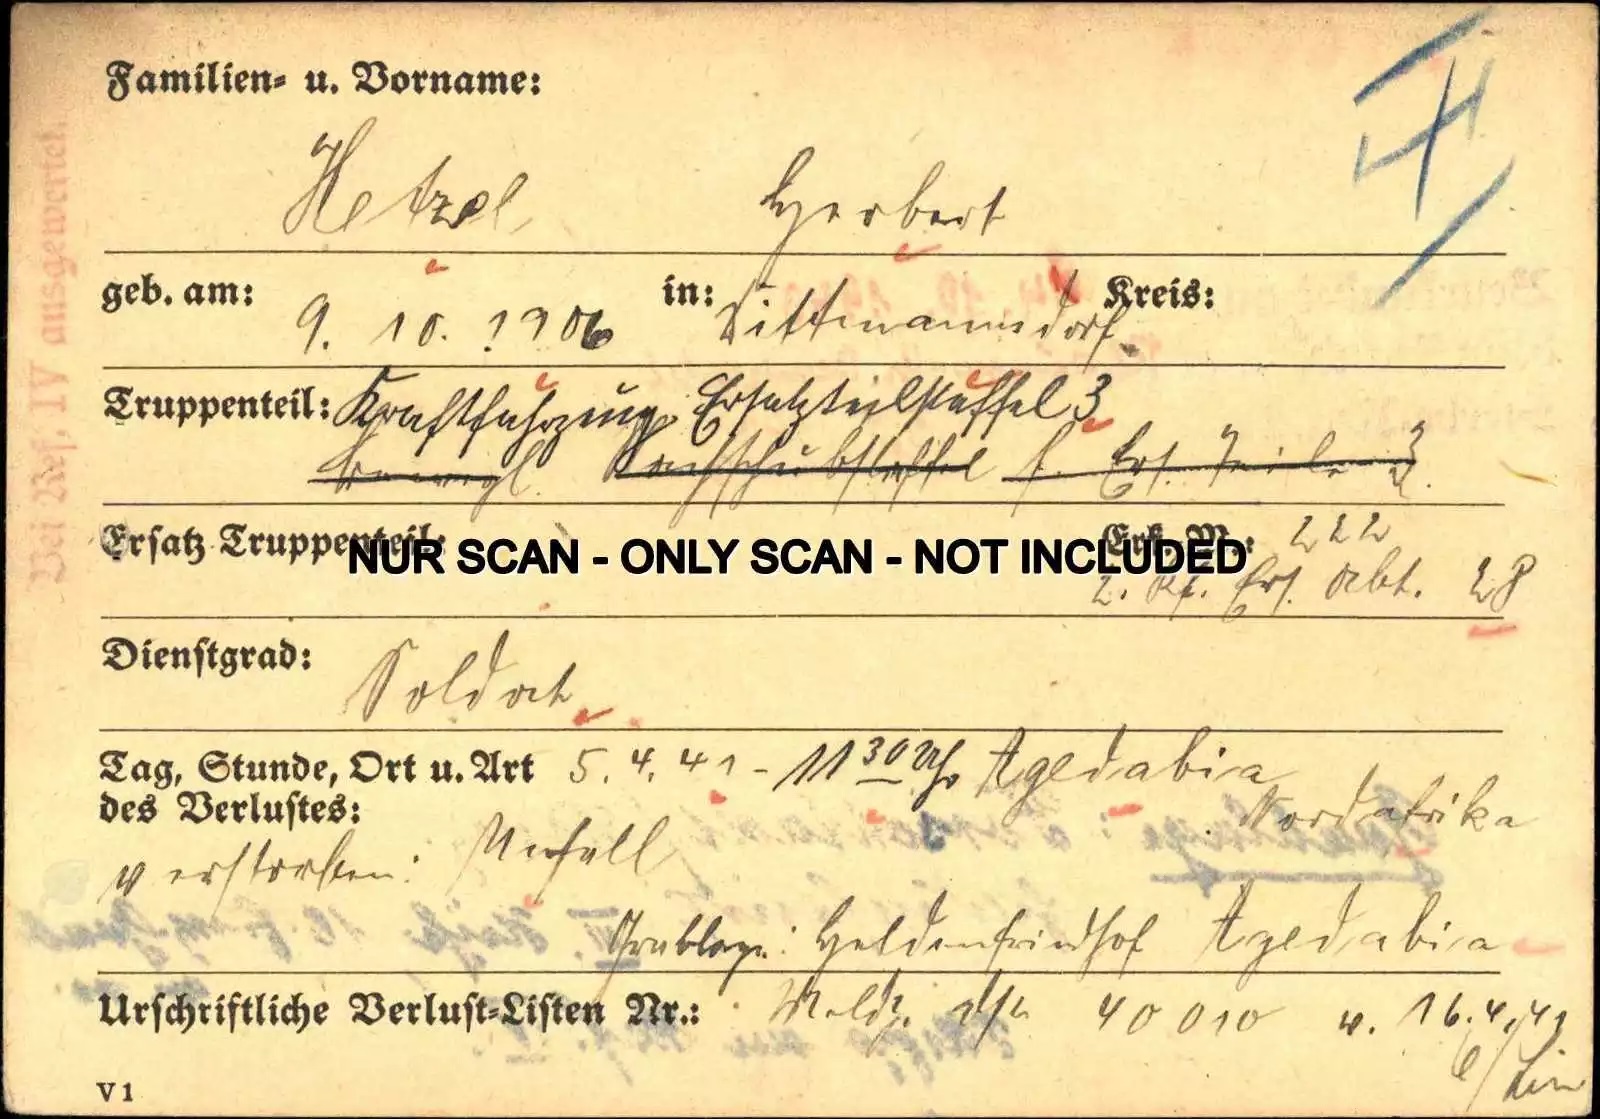 Familien- u. Vorname:
Hetzel, Herbert
geb. am: 9. 10. 1906 in: Dittmannsdorf Kreis:
Truppenteil: Kraftfahrzeug Ersatzteilstaffel 3
Nachschubstaffel f. Ers. Teile 3.
Ersatz Truppenteil: Erk. M.: 222
NUR SCAN - ONLY SCAN - NOT INCLUDED
2. Kf. Ers. Abt. 28
Dienstgrad: Soldat
Tag, Stunde, Ort u. Art 5. 4. 41 - 11 30 Uhr Agedabia
des Verlustes: Nordafrika
verstorben: Unfall
Grablage: Heldenfriedhof Agedabia
Urschriftliche Verlust-Listen Nr.: Meldg. 40010 v. 16.4.41
V 1
Bei Ref. IV ausgewertet.